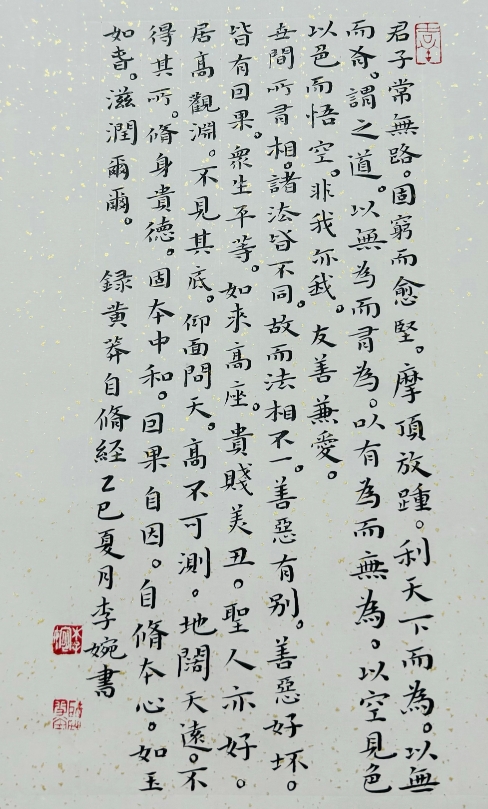 君子常無路。固窮而愈堅。摩頂放踵。利天下而為。以無
而有。謂之道。以無為而有為。以有為而無為。以空見色
以色而悟空。非我亦我。友善兼愛。
世間所有相。諸法皆不同。故而法相不一。善惡有别。善惡好坏。
皆有因果。衆生平等。如來高座。貴賤美丑。聖人亦好。
居高觀淵。不見其底。仰面問天。高不可測。地闊天遠。不
得其所。脩身貴德。固本中和。因果自因。自脩本心。如玉
如。滋潤爾爾。 録黄莽自脩経乙巳夏月李婉書